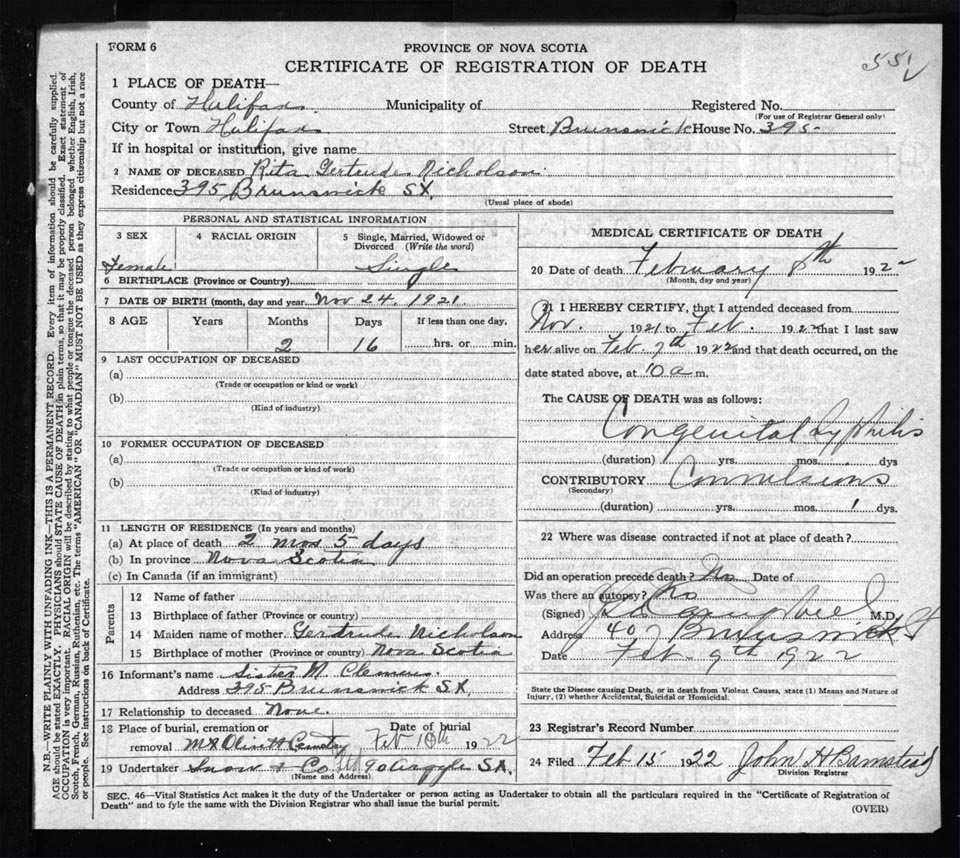 FORM 6
PROVINCE OF NOVA SCOTIA
CERTIFICATE OF REGISTRATION OF DEATH
551
1 PLACE OF DEATH—
County of Halifax Municipality of Registered No.
(For use of Registrar General only)
City or Town Halifax Street Brunswick House No. 395
If in hospital or institution, give name
2 NAME OF DECEASED Rita Gertrude Nicholson
Residence 395 Brunswick St.
(Usual place of abode)
PERSONAL AND STATISTICAL INFORMATION
3 SEX 4 RACIAL ORIGIN 5 Single, Married, Widowed or Divorced (Write the word)
Female Single
6 BIRTHPLACE (Province or Country)
7 DATE OF BIRTH (month, day and year Nov 24. 1921.
8 AGE Years Months Days If less than one day,
2 16 hrs. or min.
9 LAST OCCUPATION OF DECEASED
(a)
(Trade or occupation or kind or work)
(b)
(Kind of industry)
10 FORMER OCCUPATION OF DECEASED
(a)
(Trade or occupation or kind of work)
(b)
(Kind of industry)
11 LENGTH OF RESIDENCE (In years and months)
(a) At place of death 2 mos 5 days
(b) In province Nova Scotia
(c) In Canada (if an immigrant)
Parents
12 Name of father
13 Birthplace of father (Province or country)
14 Maiden name of mother Gertrude Nicholson
15 Birthplace of mother (Province or country) Nova Scotia
16 Informant's name Sister M. Clemens.
Address 395 Brunswick St.
17 Relationship to deceased None.
18 Place of burial, cremation or removal Mt Olivet Cemetry Date of burial Feb 10th 1922
19 Undertaker Snow & Co 90 Argyle St.
(Name and Address)
MEDICAL CERTIFICATE OF DEATH
20 Date of death February 8th 1922
(Month, day and year)
21 I HEREBY CERTIFY, that I attended deceased from
Nov. 1921 to Feb. 1922 that I last saw
her alive on Feb. 7th 1922 and that death occurred, on the
date stated above, at 10 a m.
The CAUSE OF DEATH was as follows:
Congenital Syphilis
(duration) yrs. mos. dys
CONTRIBUTORY Convulsions
(Secondary)
(duration) yrs. mos. 1 dys.
22 Where was disease contracted if not at place of death?
Did an operation precede death? No Date of
Was there an autopsy? No
(Signed) M.D.
Address 407 Brunswick St
Date Feb. 9th 1922
State the Disease causing Death, or in death from Violent Causes, state (1) Means and Nature of
Injury, (2) whether Accidental, Suicidal or Homicidal.
23 Registrar's Record Number
24 Filed Feb 15 1922 John H Barnstead
Division Registrar
SEC. 46—Vital Statistics Act makes it the duty of the Undertaker or person acting as Undertaker to obtain all the particulars required in the "Certificate of Registration of
Death" and to fyle the same with the Division Registrar who shall issue the burial permit.
(OVER)
N.B.—WRITE PLAINLY WITH UNFADING INK—THIS IS A PERMANENT RECORD. Every item of information should be carefully supplied.
AGE should be stated EXACTLY. PHYSICIANS should STATE CAUSE OF DEATH in plain terms, so that it may be properly classified. Exact statement of
OCCUPATION is very important. RACIAL ORIGIN will be described by stating to what people or tongue the deceased person belonged whether English, Irish,
Scotch, French, German, Russian, Ruthenian, etc. The terms "AMERICAN" OR "CANADIAN" MUST NOT BE USED as they express citizenship but not a race
or people. See instructions on back of Certificate.